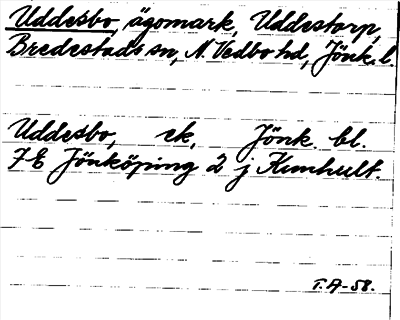 Uddesbo, ägomark, Uddestorp,
Bredestads sn, N. Vedbo hd, Jönk. l.
Uddesbo, ek, Jönk. bl.
7E Jönköping 2 j Kumhult.
T.A-58.